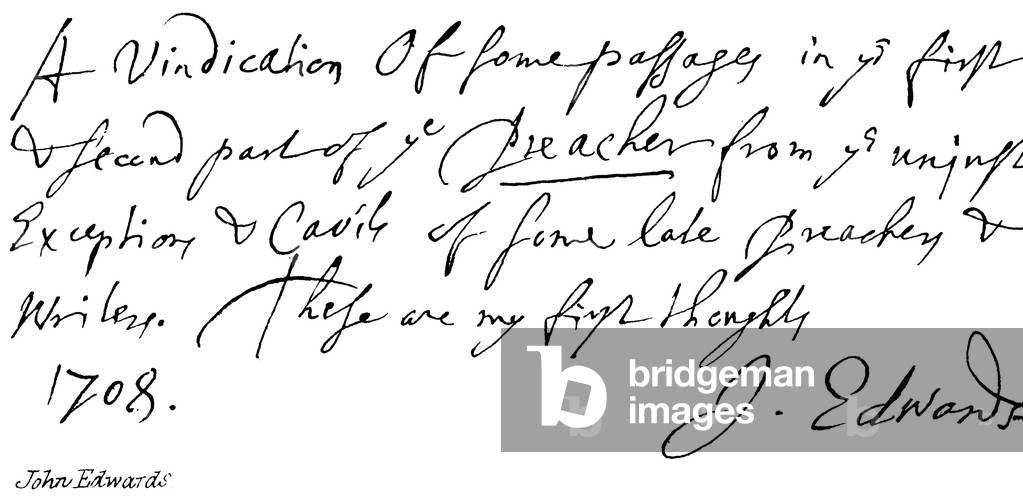 A Vindication Of some passages in yᵉ first
& second part of yᵉ Preacher from yᵉ unjust
Exceptions & Cavils of some late Preachers &
Writers. These are my first thoughts
1708.
J. Edwards
bridgeman
images
John Edwards